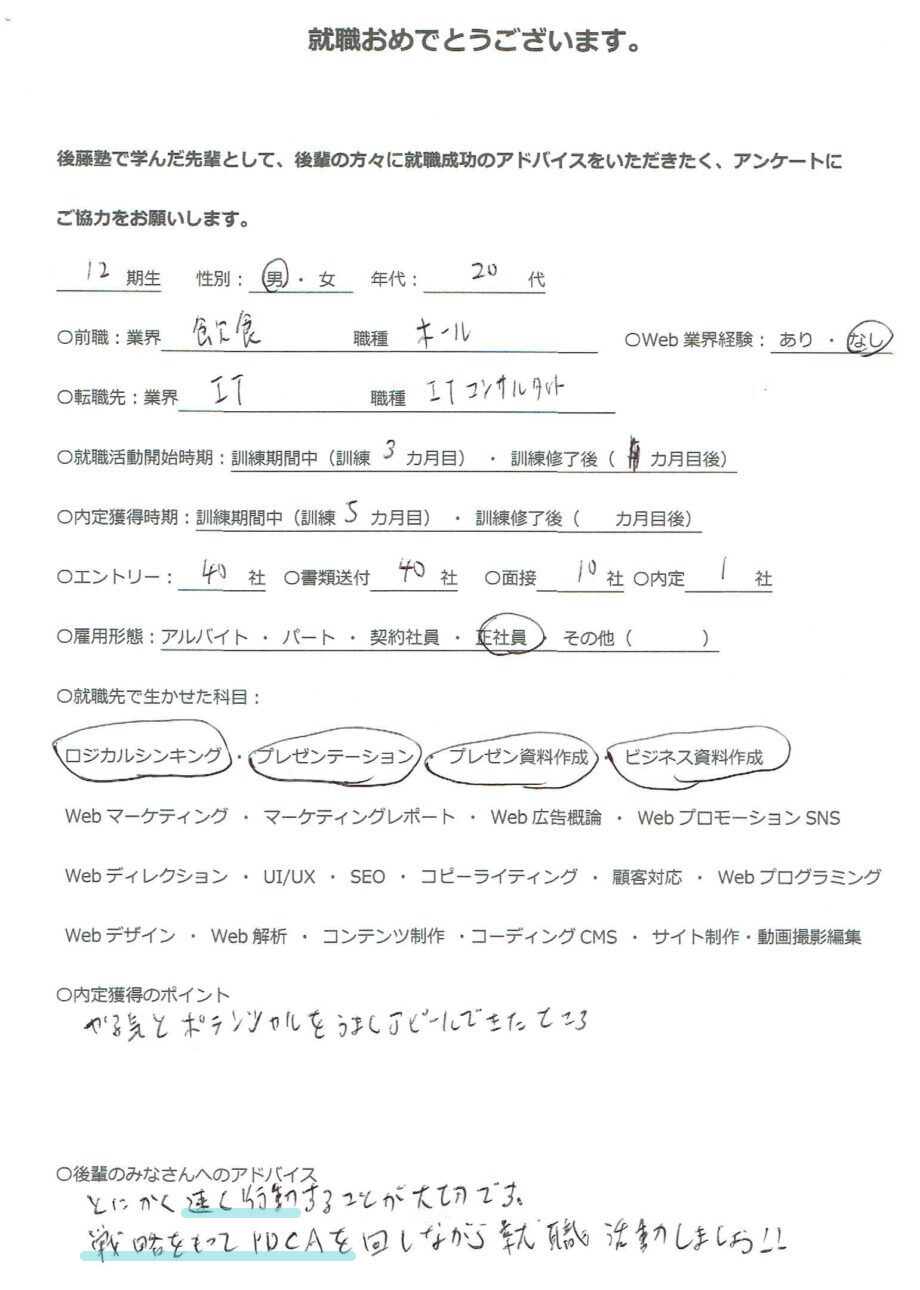 就職おめでとうございます。
後藤塾で学んだ先輩として、後輩の方々に就職成功のアドバイスをいただきたく、アンケートに
ご協力をお願いします。
12 期生 性別： 男 ・ 女 年代： 20 代
○前職：業界 飲食 職種 ホール ○Web 業界経験： あり ・ なし
○転職先：業界 IT 職種 ITコンサルタント
○就職活動開始時期：訓練期間中（訓練 3 カ月目） ・ 訓練修了後（ カ月目後）
○内定獲得時期：訓練期間中（訓練 5 カ月目） ・ 訓練修了後（ カ月目後）
○エントリー： 40 社 ○書類送付 40 社 ○面接 10 社 ○内定 1 社
○雇用形態：アルバイト ・ パート ・ 契約社員 ・ 正社員 ・ その他（ ）
○就職先で生かせた科目：
ロジカルシンキング ・ プレゼンテーション ・ プレゼン資料作成 ・ ビジネス資料作成
Web マーケティング ・ マーケティングレポート ・ Web 広告概論 ・ Web プロモーション SNS
Web ディレクション ・ UI/UX ・ SEO ・ コピーライティング ・ 顧客対応 ・ Web プログラミング
Web デザイン ・ Web 解析 ・ コンテンツ制作 ・コーディング CMS ・ サイト制作・動画撮影編集
○内定獲得のポイント
やる気とポテンシャルをうまくアピールできたところ
○後輩のみなさんへのアドバイス
とにかく速く行動することが大切です。
戦略をもってPDCAを回しながら就職活動しましょお!!